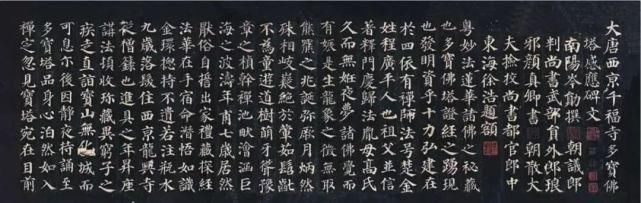 大唐西京千福寺多寶佛
塔感應碑文
南陽岑勛撰 朝議郎
判尚書武部員外郎琅
邪顏真卿書 朝散大
夫撿挍尚書都官郎中
東海徐浩題額
粵妙法蓮華諸佛之秘藏
也多寶佛塔證經之踴現
也發明資乎十力弘建在
於四依有禪師法号楚金
姓程廣平人也祖父並信
著釋門慶歸法胤母高氏
久而無姙夜夢諸佛覺而
有娠是生龍象之徵無取
熊羆之兆誕彌厥月炳然
殊相岐嶷絕於葷茹髫齓
不為童遊道樹萌牙聳豫
章之楨幹禪池畎澮涵巨
海之波濤年甫七歲居然
厭俗自誓出家禮藏探經
法華在手宿命潛悟如識
金環揔持不遺若注瓶水
九歲落髮住西京龍興寺
從僧籙也進具之年昇座
講法頓收珍藏異窮子之
疾走直詣寶山無化城而
可息尒後因靜夜持誦至
多寶塔品身心泊然如入
禪定忽見寶塔宛在目前